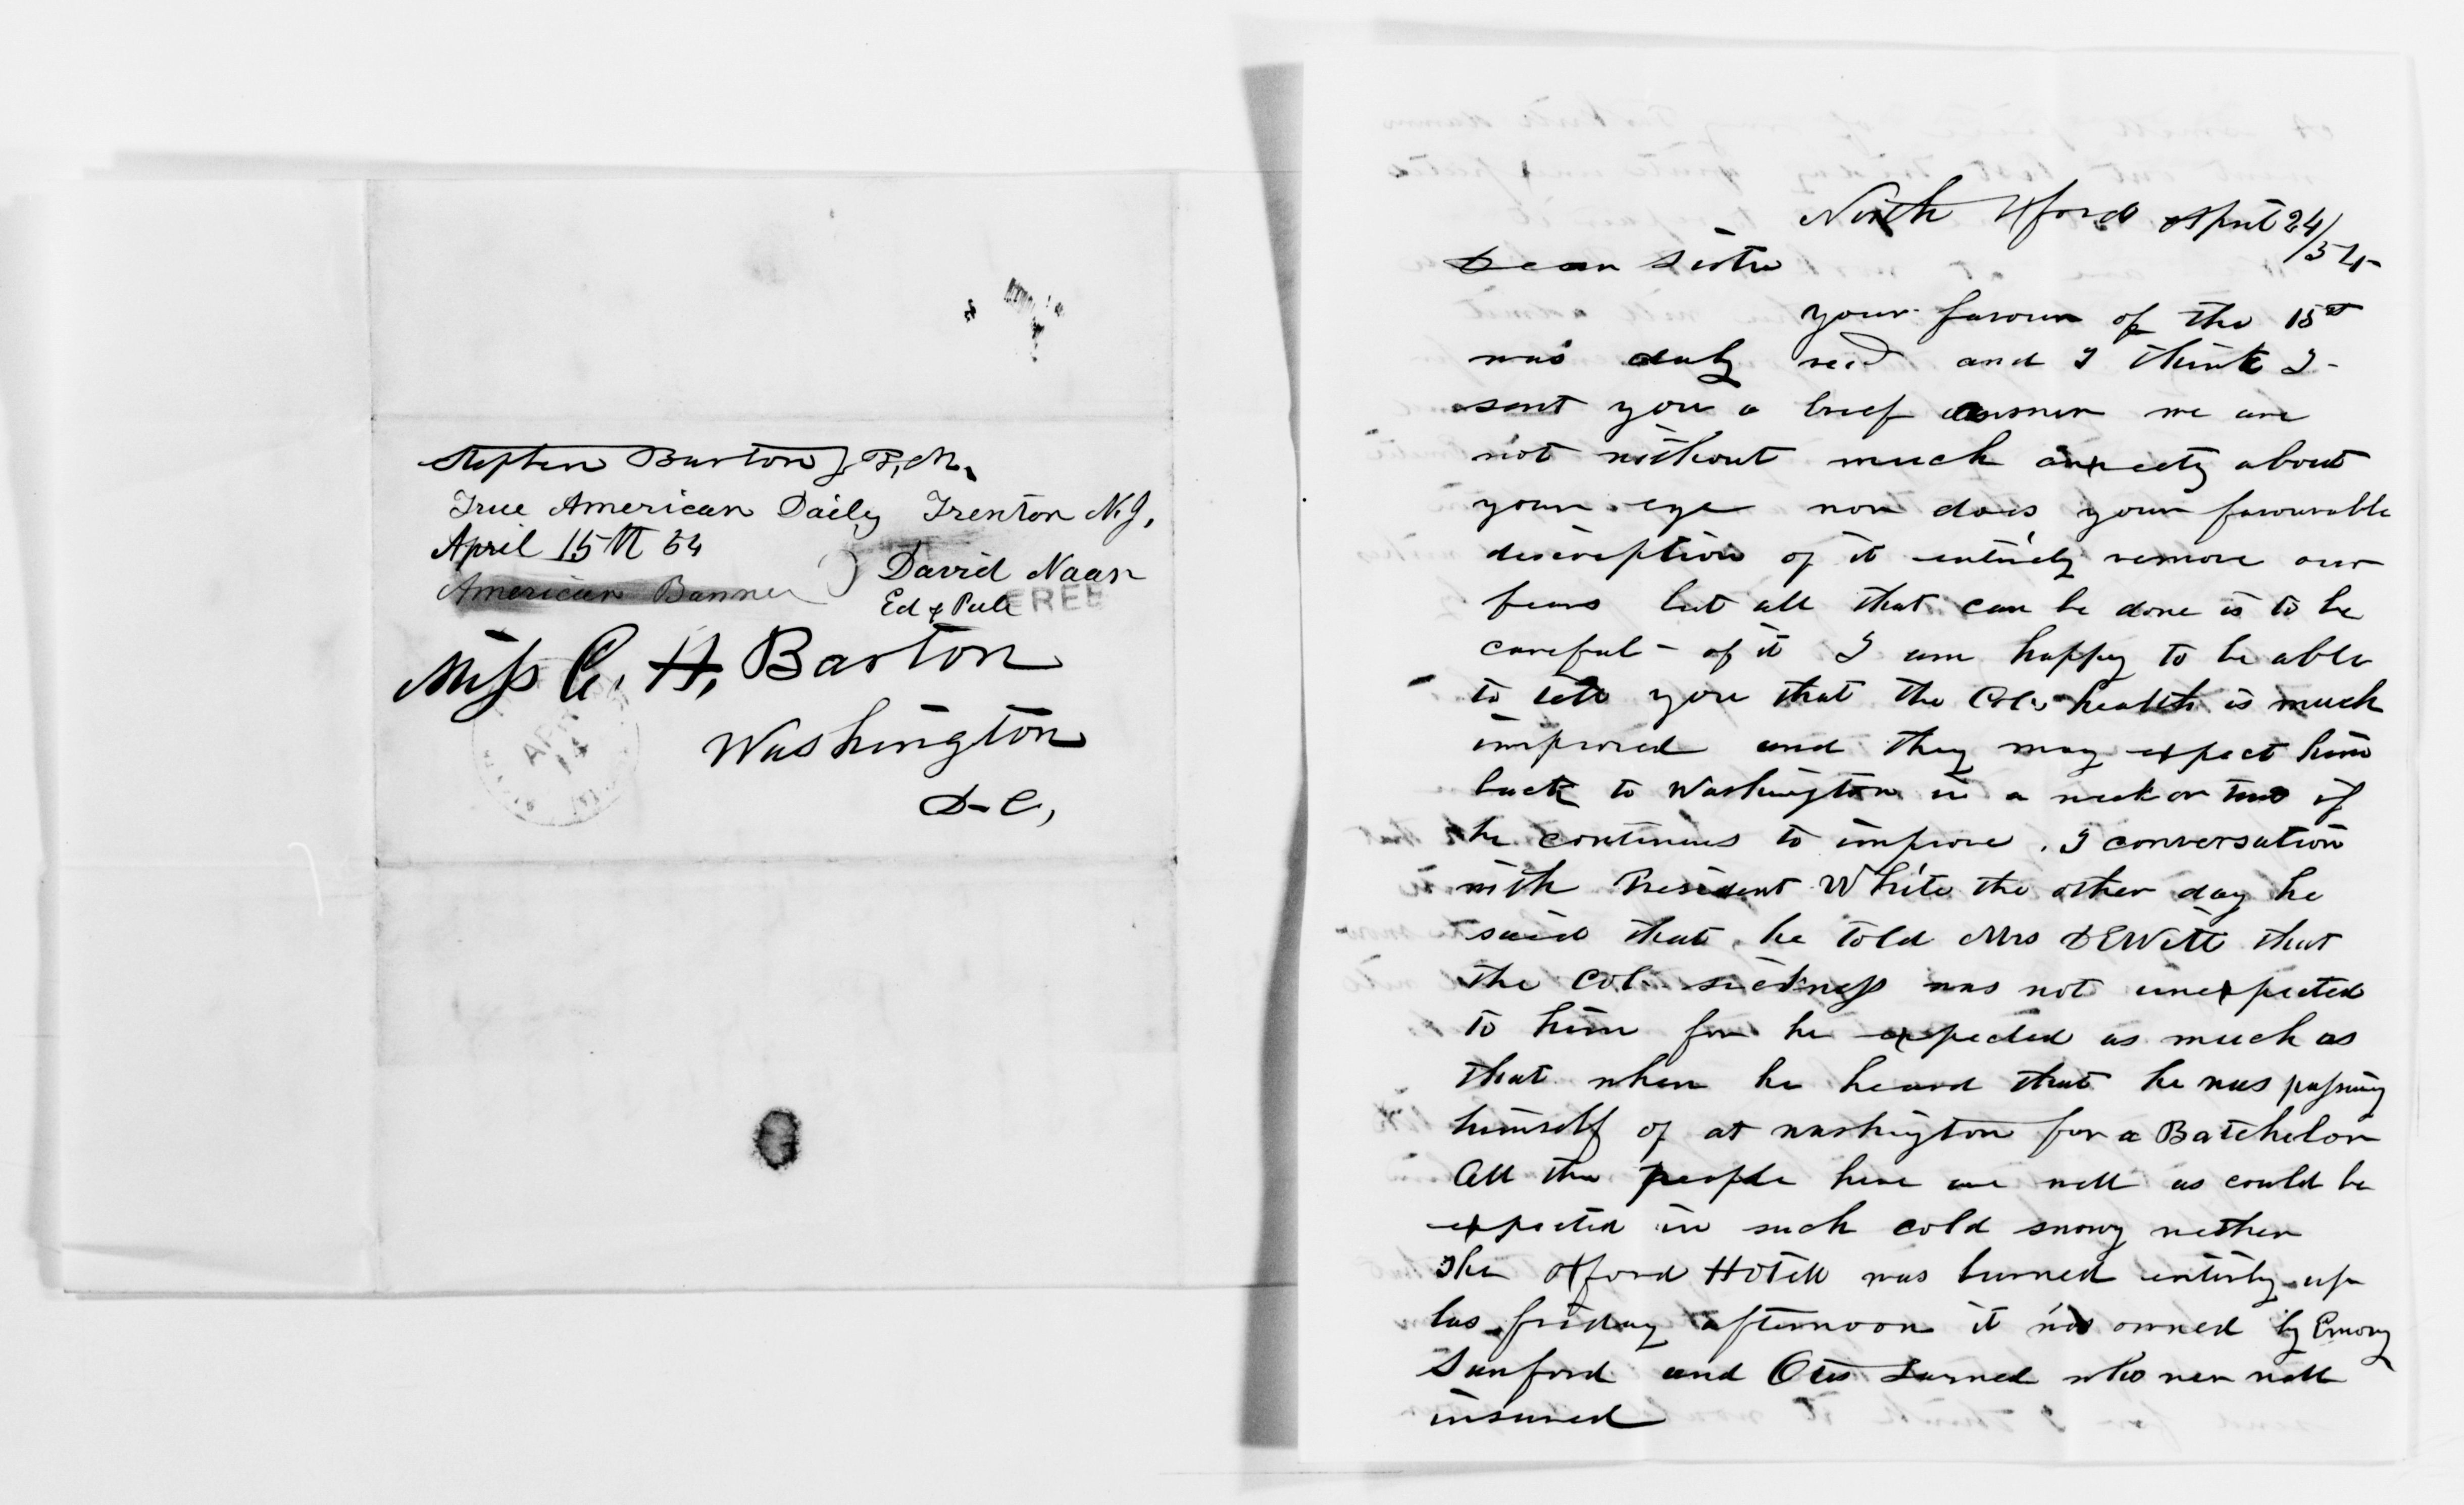 Stephen Barton Jr P.M.
True American Daily Trenton N.J.
April 15th 54
American Banner
David Naar
Ed & Pub
FREE
Miss C. H. Barton
Washington
D-C,
APR
14
North Oxford April 24/54
Dear Sister
your favour of the 15st
was duly recd and I think I
sent you a breef answer we are
not without much anxiety about
your eye nor does your favourable
description of it entirely remove our
fears but all that can be done is to be
careful - of it I am happy to be able
to tell you that the Cols health is much
improved and they may expect him
back to Washington in a week or two if
he continues to improve. I conversation
with President White the other day he
said that he told Mrs DEWitt that
the Col. sickness was not unexpected
to him for he expected as much as
that when he heard that he was passing
himself of at washington for a Batchelor
All the people here are well as could be
expected in such cold snowy wether
The Oxford Hotell was burned entirely up
las friday afternoon it was owned by Emory
Sanford and Otis Larned who wer well
insured